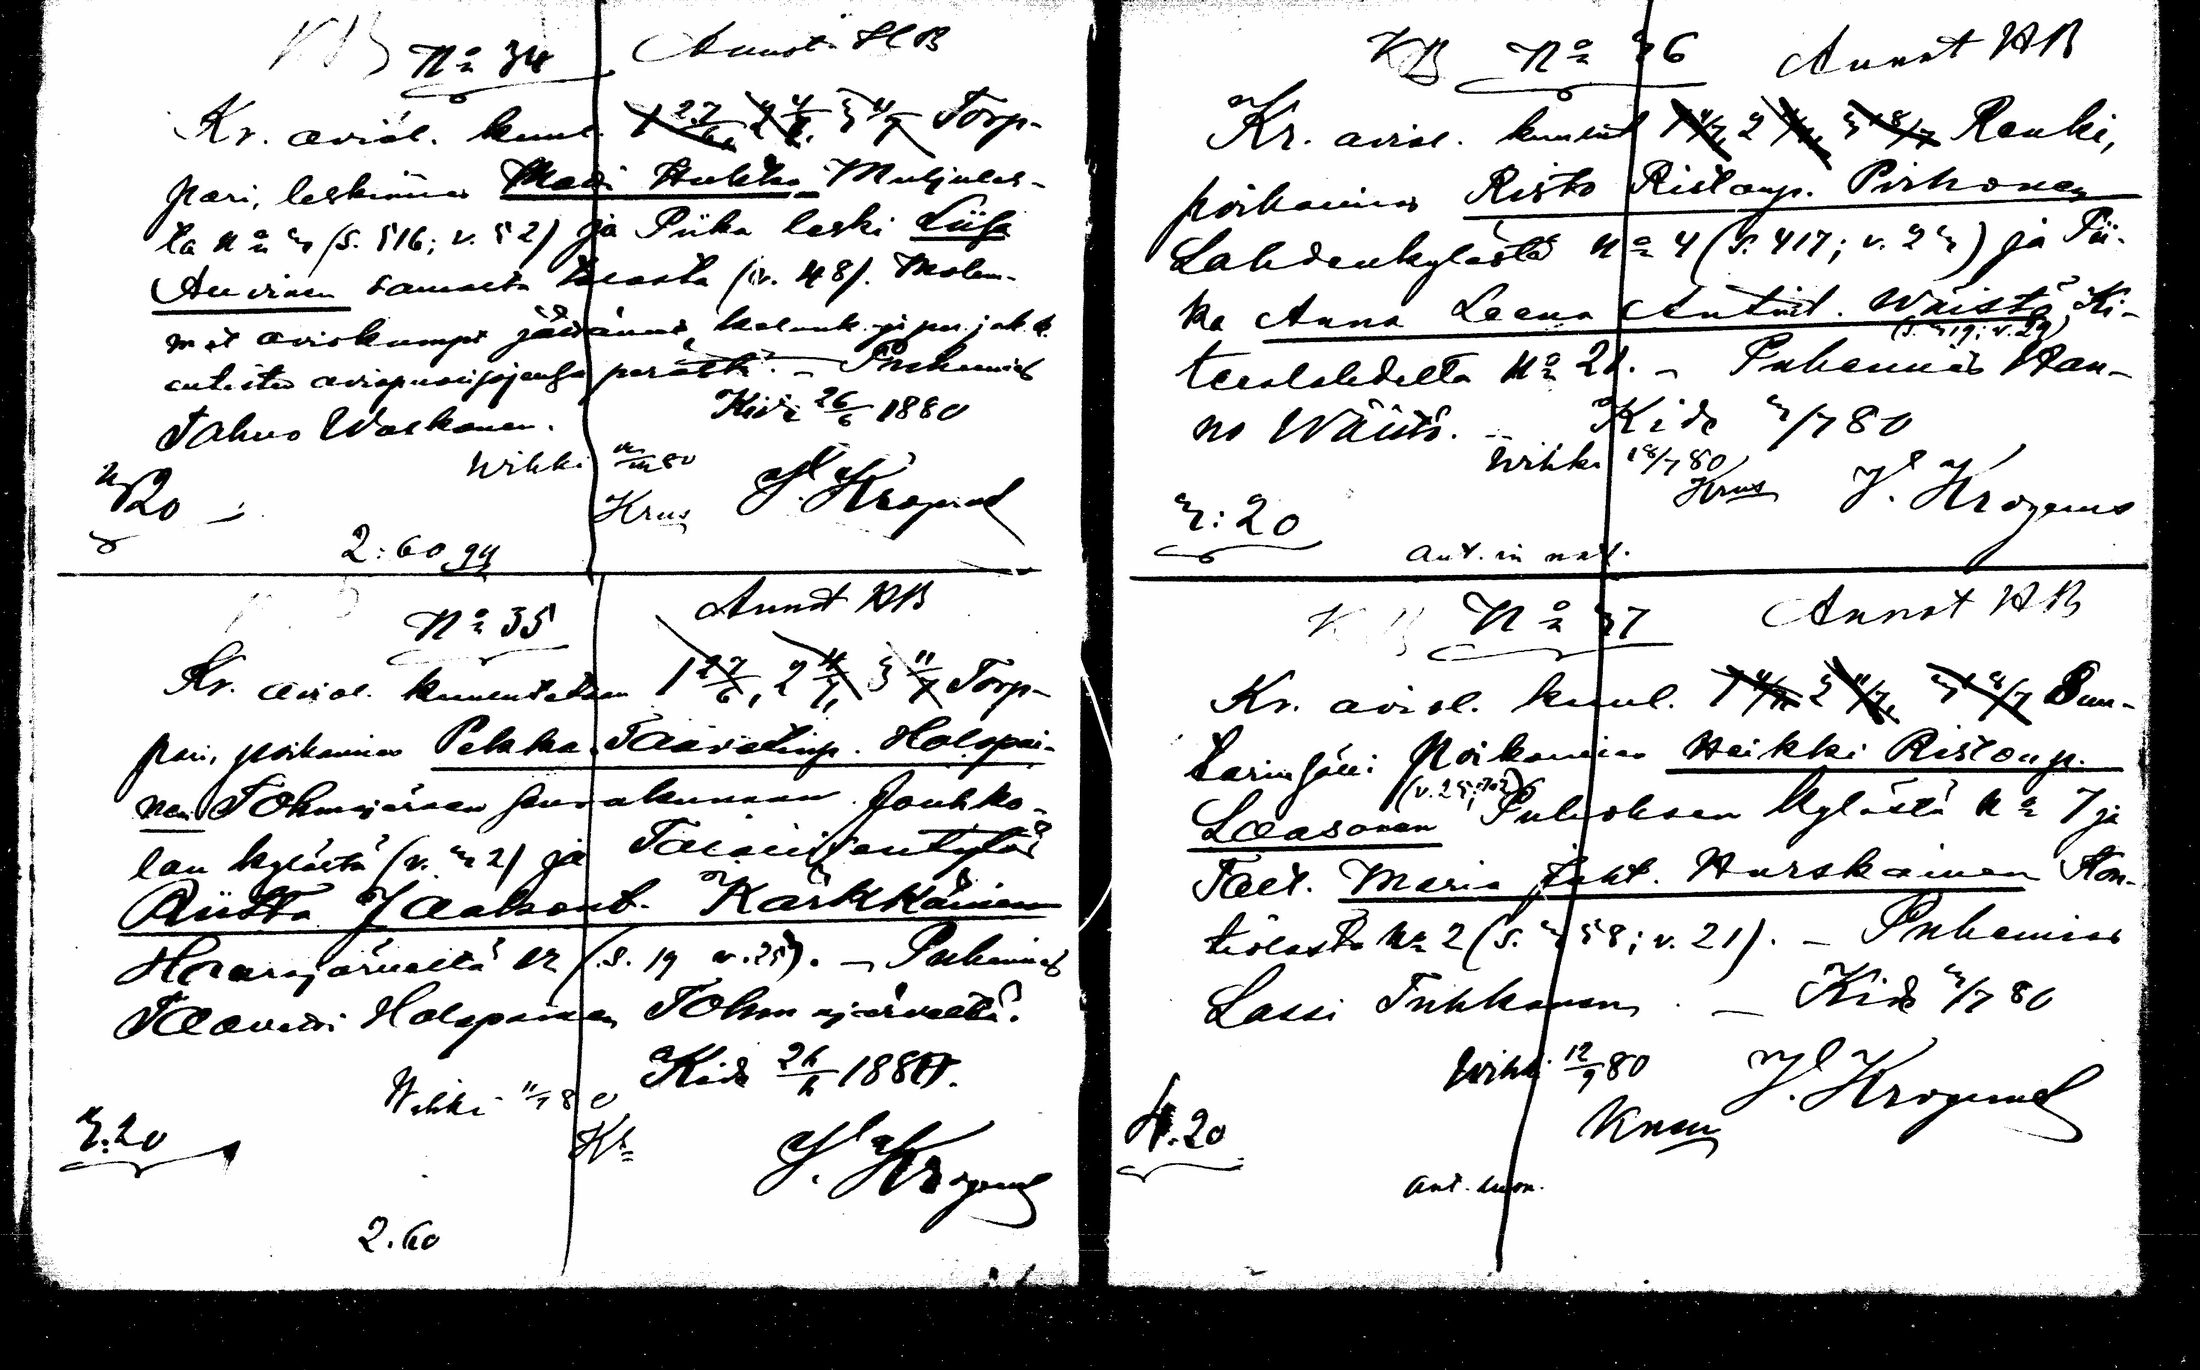 KB No 34 Annot. HB
Kr. aviol. kuul. 1 27/6, 2 4/7, 3 4/7 Torp-
pari, leskimies Madi Hukka Muljulas-
ta No 3 (s. 516; v. 52) ja Piika leski Liisa
Auvinen samasta talosta (v. 48). Molem-
mat aviokumpp.
entisten perästä. – Puhemies
Tahvo Waskonen. Kide 26/6 1880
Wihki 80
3:20 Krus J. Krogerus
2:60
No 35 Annot HB
Kr. aviol. kuulutetaan 1 27/6, 2 4/7, 3 11/7 Torp-
pari, poikamies Pekka Taavetinp. Holopai-
nen Tohmajärven seurakunnan Jouhko-
lan kylästä (v. 32) ja Talollisentytär
Riitta Jaakont. Kärkkäinen
Haarajärveltä 12 (s. 19 v. 25). – Puhemies
Taavetti Holopainen Tohmajärveltä.
Kide 26/6 1880.
Wihki 11/7 80
3.20 Kr J. Krogerus
2.60
KB No 36 Annot HB
Kr. aviol. kuulut 1 4/7, 2 11/7, 3 18/7 Renki,
poikamies Risto Ristonp. Pirhonen
Lahdenkylästä No 4 (s. 417; v. 23) ja Pii-
ka Anna Leena Antint. Wäistö, Ki-
(s. 319; v. 29)
teenlahdelta No 21. – Puhemies Han-
no Wäistö. – Kide 3/7 80
Wihki 18/7 80
Krus J. Krogerus
3:20
ant. in mat.
KB No 37 Annot HB
Kr. aviol. kuul. 1 4/7, 2 11/7, 3 18/7 Suu-
tarinsälli Poikamies Heikki Ristonp.
Laasonen Puhoksen kylästä No 7 ja
Talt. Maria Juht. Hurskainen Kon-
tiolasta No 2 (s. 358; v. 21). – Puhemies
Lassi Tuhkanen. – Kide 3/7 80
Wihki 12/9 80 J. Krogerus
4.20